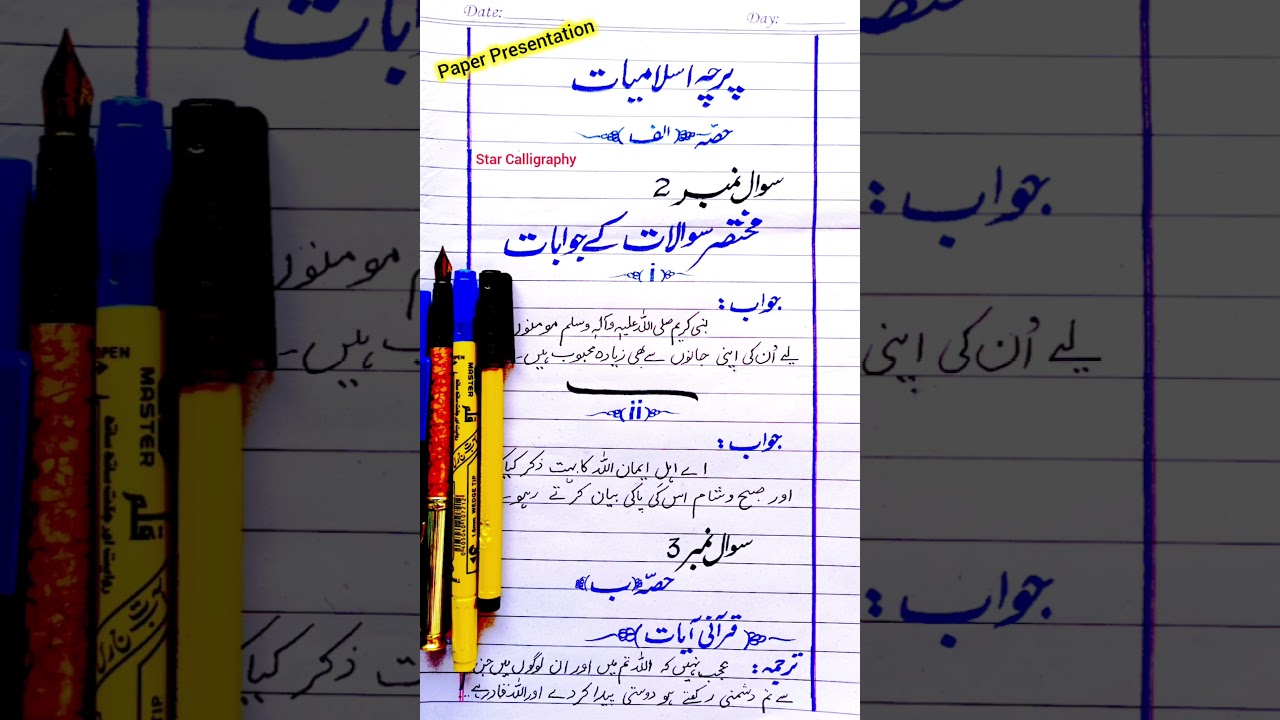 Date:
Day:
Paper Presentation
پرچہ اسلامیات
حصّہ (الف)
Star Calligraphy
سوال نمبر 2
مختصر سوالات کے جوابات
(i)
جواب:
نبی کریم صلی اللہ علیہ وآلہٖ وسلم مومنوں
لیے اُن کی اپنی جانوں سے بھی زیادہ محبوب ہیں۔
(ii)
جواب:
اے اہلِ ایمان اللہ کا بہت ذکر کیا
اور صبح و شام اس کی پاکی بیان کرتے رہو۔
سوال نمبر 3
حصّہ (ب)
(قرآنی آیات)
ترجمہ: عجب نہیں کہ اللہ تم میں اور ان لوگوں میں جن
سے تم دشمنی رکھتے ہو دوستی پیدا کر دے اور اللہ قادر ہے
OPEN
MASTER
قلم
WEDGE TIP